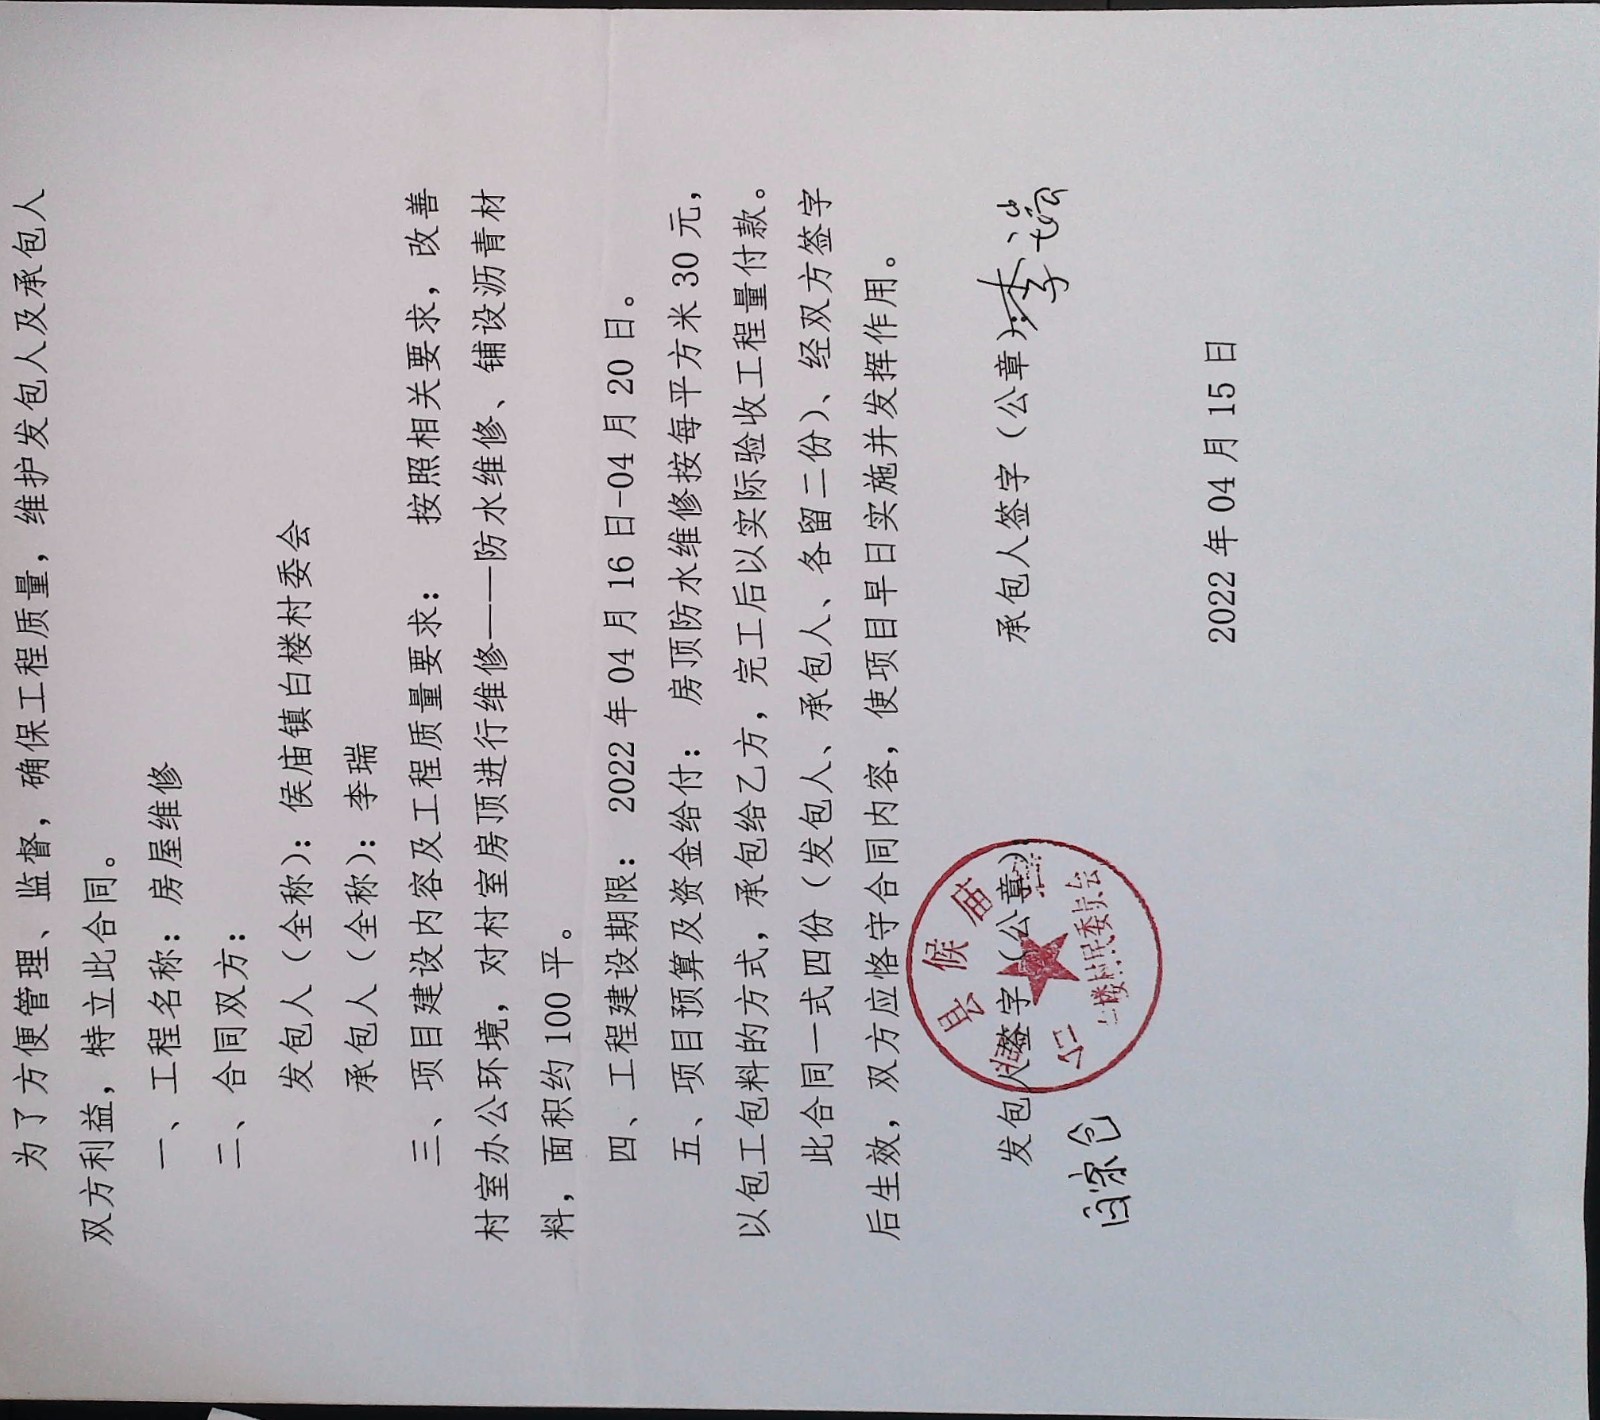 为了方便管理、监督，确保工程质量，维护发包人及承包人
双方利益，特立此合同。
一、工程名称：房屋维修
二、合同双方：
发包人（全称）：侯庙镇白楼村委会
承包人（全称）：李瑞
三、项目建设内容及工程质量要求： 按照相关要求，改善
村室办公环境，对村室房顶进行维修——防水维修、铺设沥青材
料，面积约 100 平。
四、工程建设期限： 2022 年 04 月 16 日-04 月 20 日。
五、项目预算及资金给付： 房顶防水维修按每平方米 30 元，
以包工包料的方式，承包给乙方，完工后以实际验收工程量付款。
此合同一式四份（发包人、承包人、各留二份）、经双方签字
后生效，双方应恪守合同内容，使项目早日实施并发挥作用。
发包人签字（公章） 承包人签字（公章）：李瑞
县候庙
楼村民委员会
2022 年 04 月 15 日